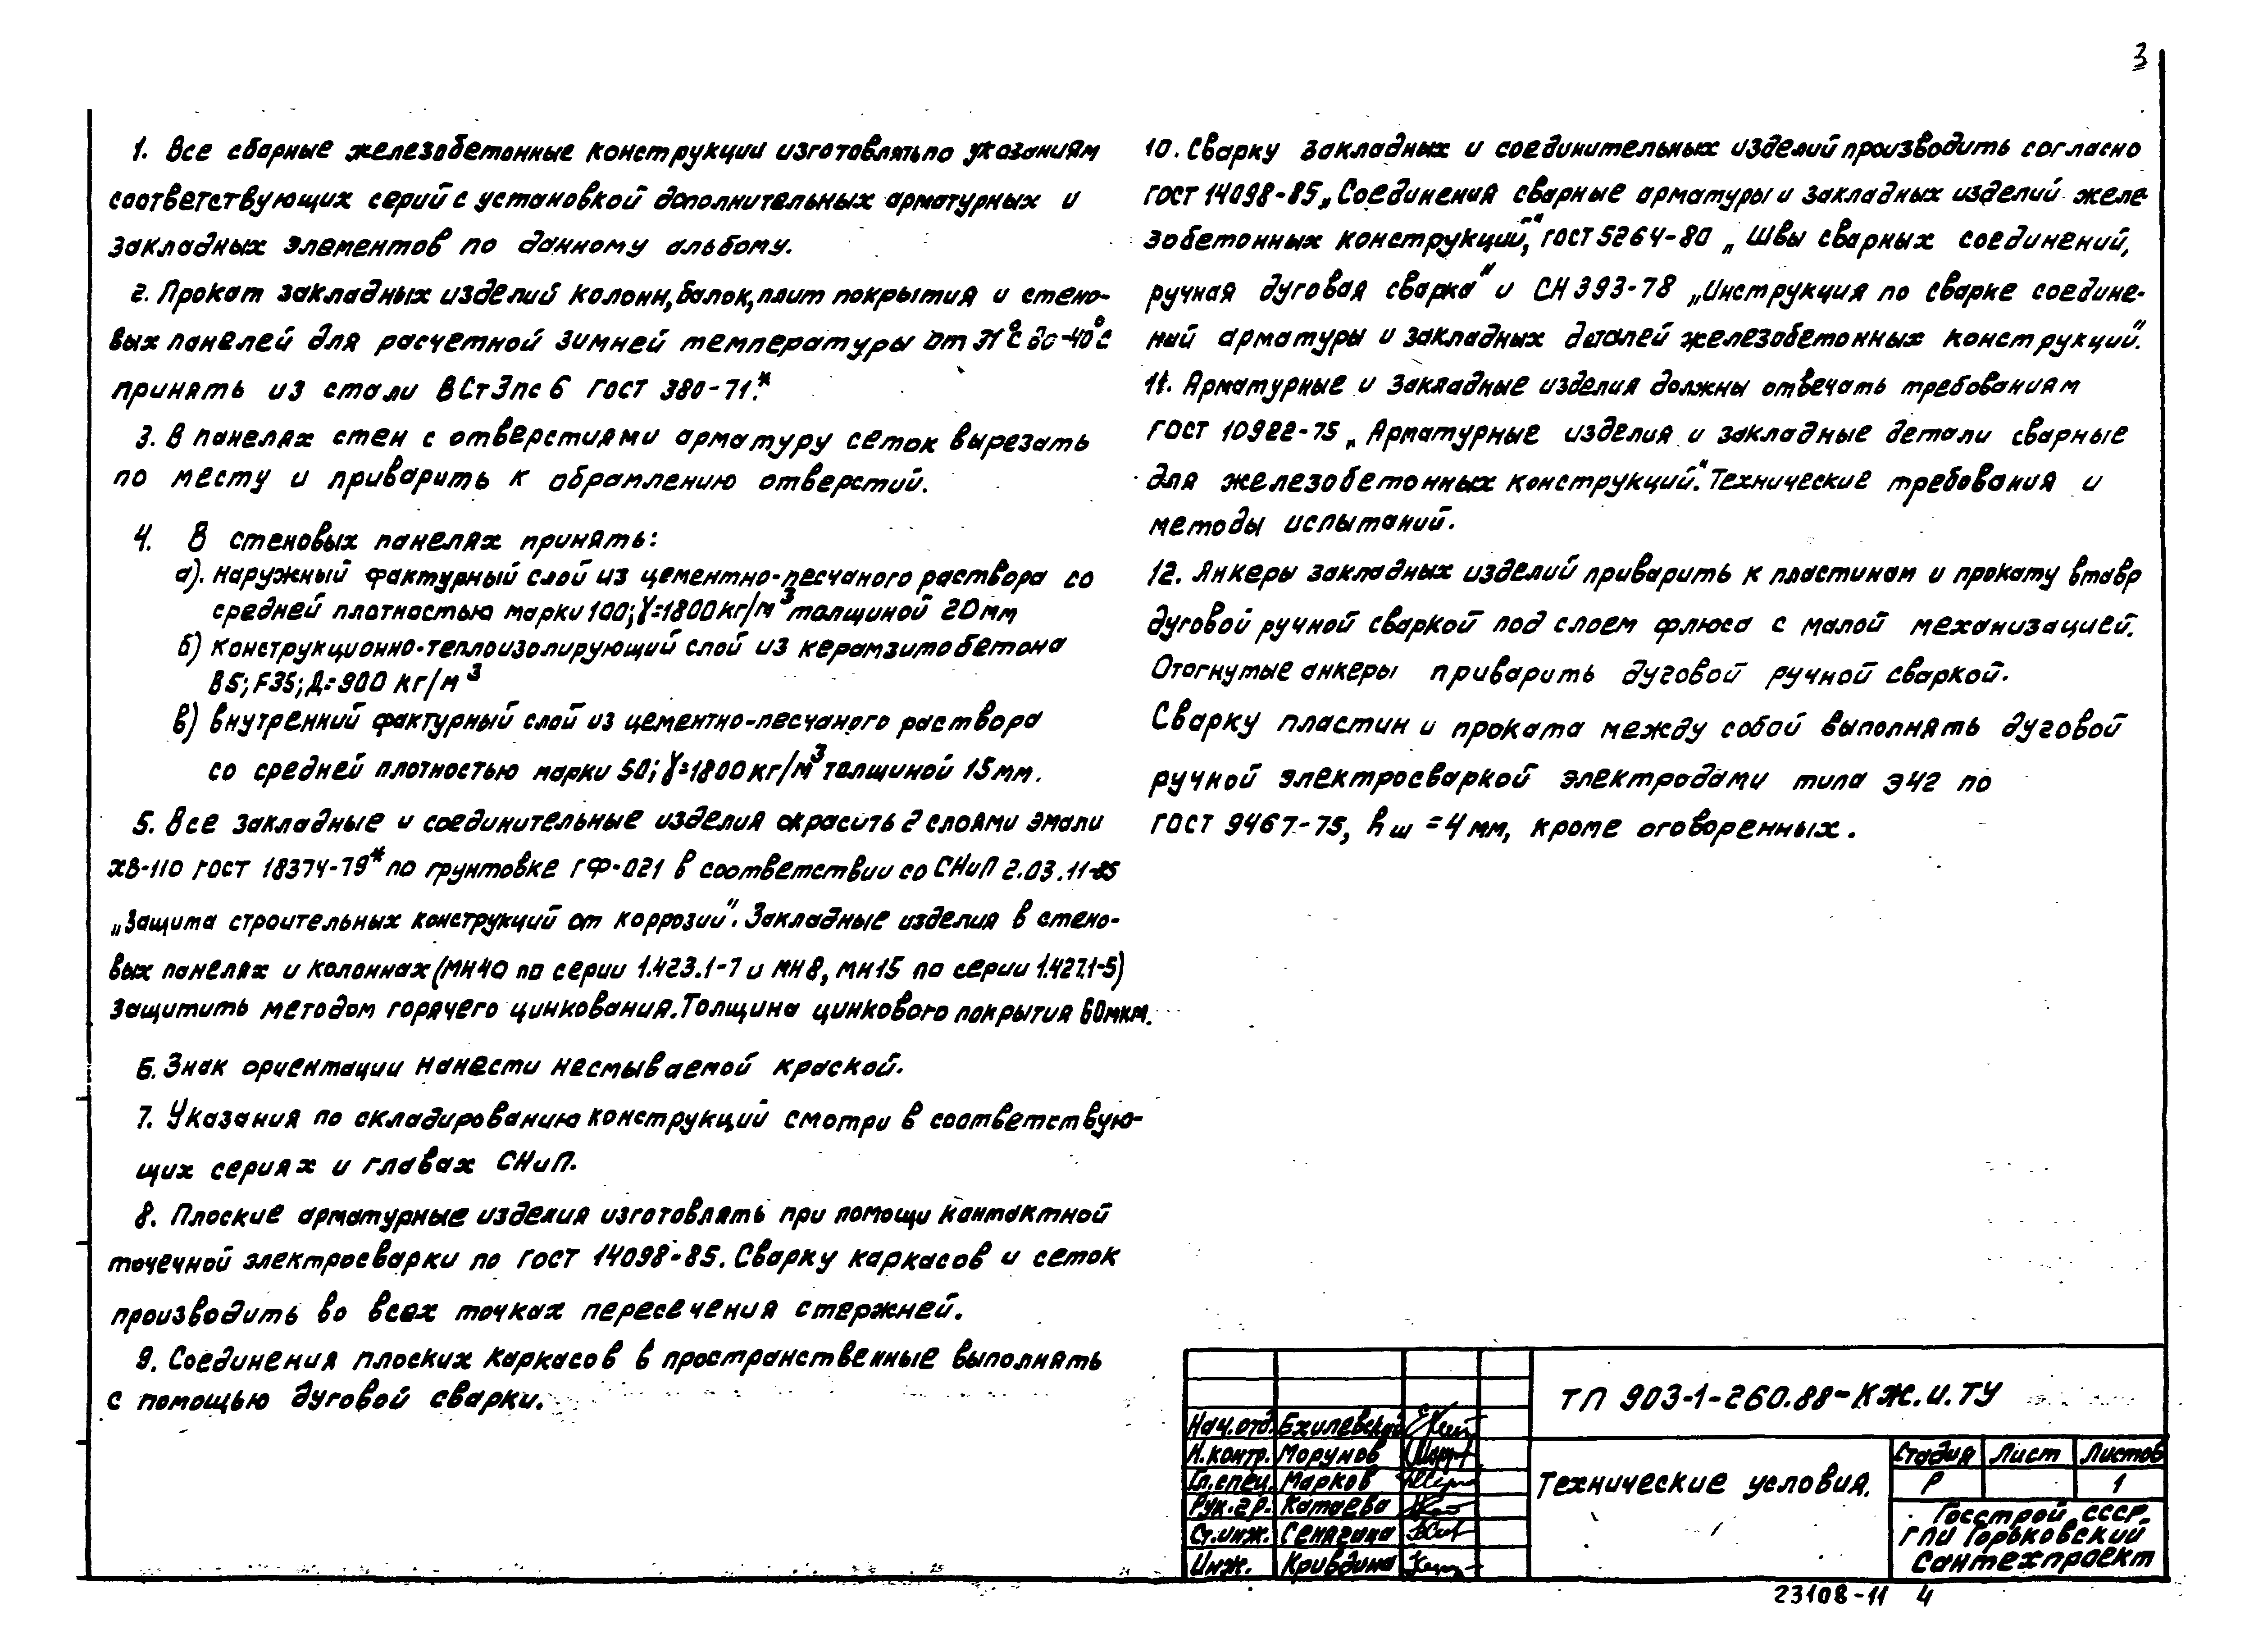 3
1. Все сборные железобетонные конструкции изготовлять по указаниям
соответствующих серий с установкой дополнительных арматурных и
закладных элементов по данному альбому.
2. Прокат закладных изделий колонн, балок, плит покрытия и стено-
вых панелей для расчетной зимней температуры от 31°С до -40°С
принять из стали ВСт3пс6 ГОСТ 380-71.*
3. В панелях стен с отверстиями арматуру сеток вырезать
по месту и приварить к обрамлению отверстий.
4. В стеновых панелях принять:
а). наружный фактурный слой из цементно-песчаного раствора со
средней плотностью марки 100; γ=1800кг/м³ толщиной 20мм
б) конструкционно-теплоизолирующий слой из керамзитобетона
В5; F35; Д=900 кг/м³
в) внутренний фактурный слой из цементно-песчаного раствора
со средней плотностью марки 50; γ=1800кг/м³ толщиной 15мм.
5. Все закладные и соединительные изделия окрасить 2 слоями эмали
ХВ-110 ГОСТ 18374-79* по грунтовке ГФ-021 в соответствии со СНиП 2.03.11-85
„Защита строительных конструкций от коррозии". Закладные изделия в стено-
вых панелях и колоннах (МН40 по серии 1.423.1-7 и МН8, МН15 по серии 1.427.1-5)
защитить методом горячего цинкования. Толщина цинкового покрытия 60мкм.
6. Знак ориентации нанести несмываемой краской.
7. Указания по складированию конструкций смотри в соответствую-
щих сериях и главах СНиП.
8. Плоские арматурные изделия изготовлять при помощи контактной
точечной электросварки по ГОСТ 14098-85. Сварку каркасов и сеток
производить во всех точках пересечения стержней.
9. Соединения плоских каркасов в пространственные выполнять
с помощью дуговой сварки.
10. Сварку закладных и соединительных изделий производить согласно
ГОСТ 14098-85 „Соединения сварные арматуры и закладных изделий желе-
зобетонных конструкций", ГОСТ 5264-80 „Швы сварных соединений,
ручная дуговая сварка" и СН 393-78 „Инструкция по сварке соедине-
ний арматуры и закладных деталей железобетонных конструкций".
11. Арматурные и закладные изделия должны отвечать требованиям
ГОСТ 10922-75 „Арматурные изделия и закладные детали сварные
для железобетонных конструкций". Технические требования и
методы испытаний.
12. Анкеры закладных изделий приварить к пластинам и прокату втавр
дуговой ручной сваркой под слоем флюса с малой механизацией.
Отогнутые анкеры приварить дуговой ручной сваркой.
Сварку пластин и проката между собой выполнять дуговой
ручной электросваркой электродами типа Э42 по
ГОСТ 9467-75, hш=4мм, кроме оговоренных.
ТП 903-1-260.88-КЖ.И.ТУ
Нач.отд. Бхилевский
Н.контр. Морунов
Гл.спец. Марков
Рук.гр. Катаева
Ст.инж. Сенягина
Инж. Кривдина
Технические условия.
Стадия Лист Листов
Р 1
Госстрой СССР.
ГПИ Горьковский
Сантехпроект
23108-11 4